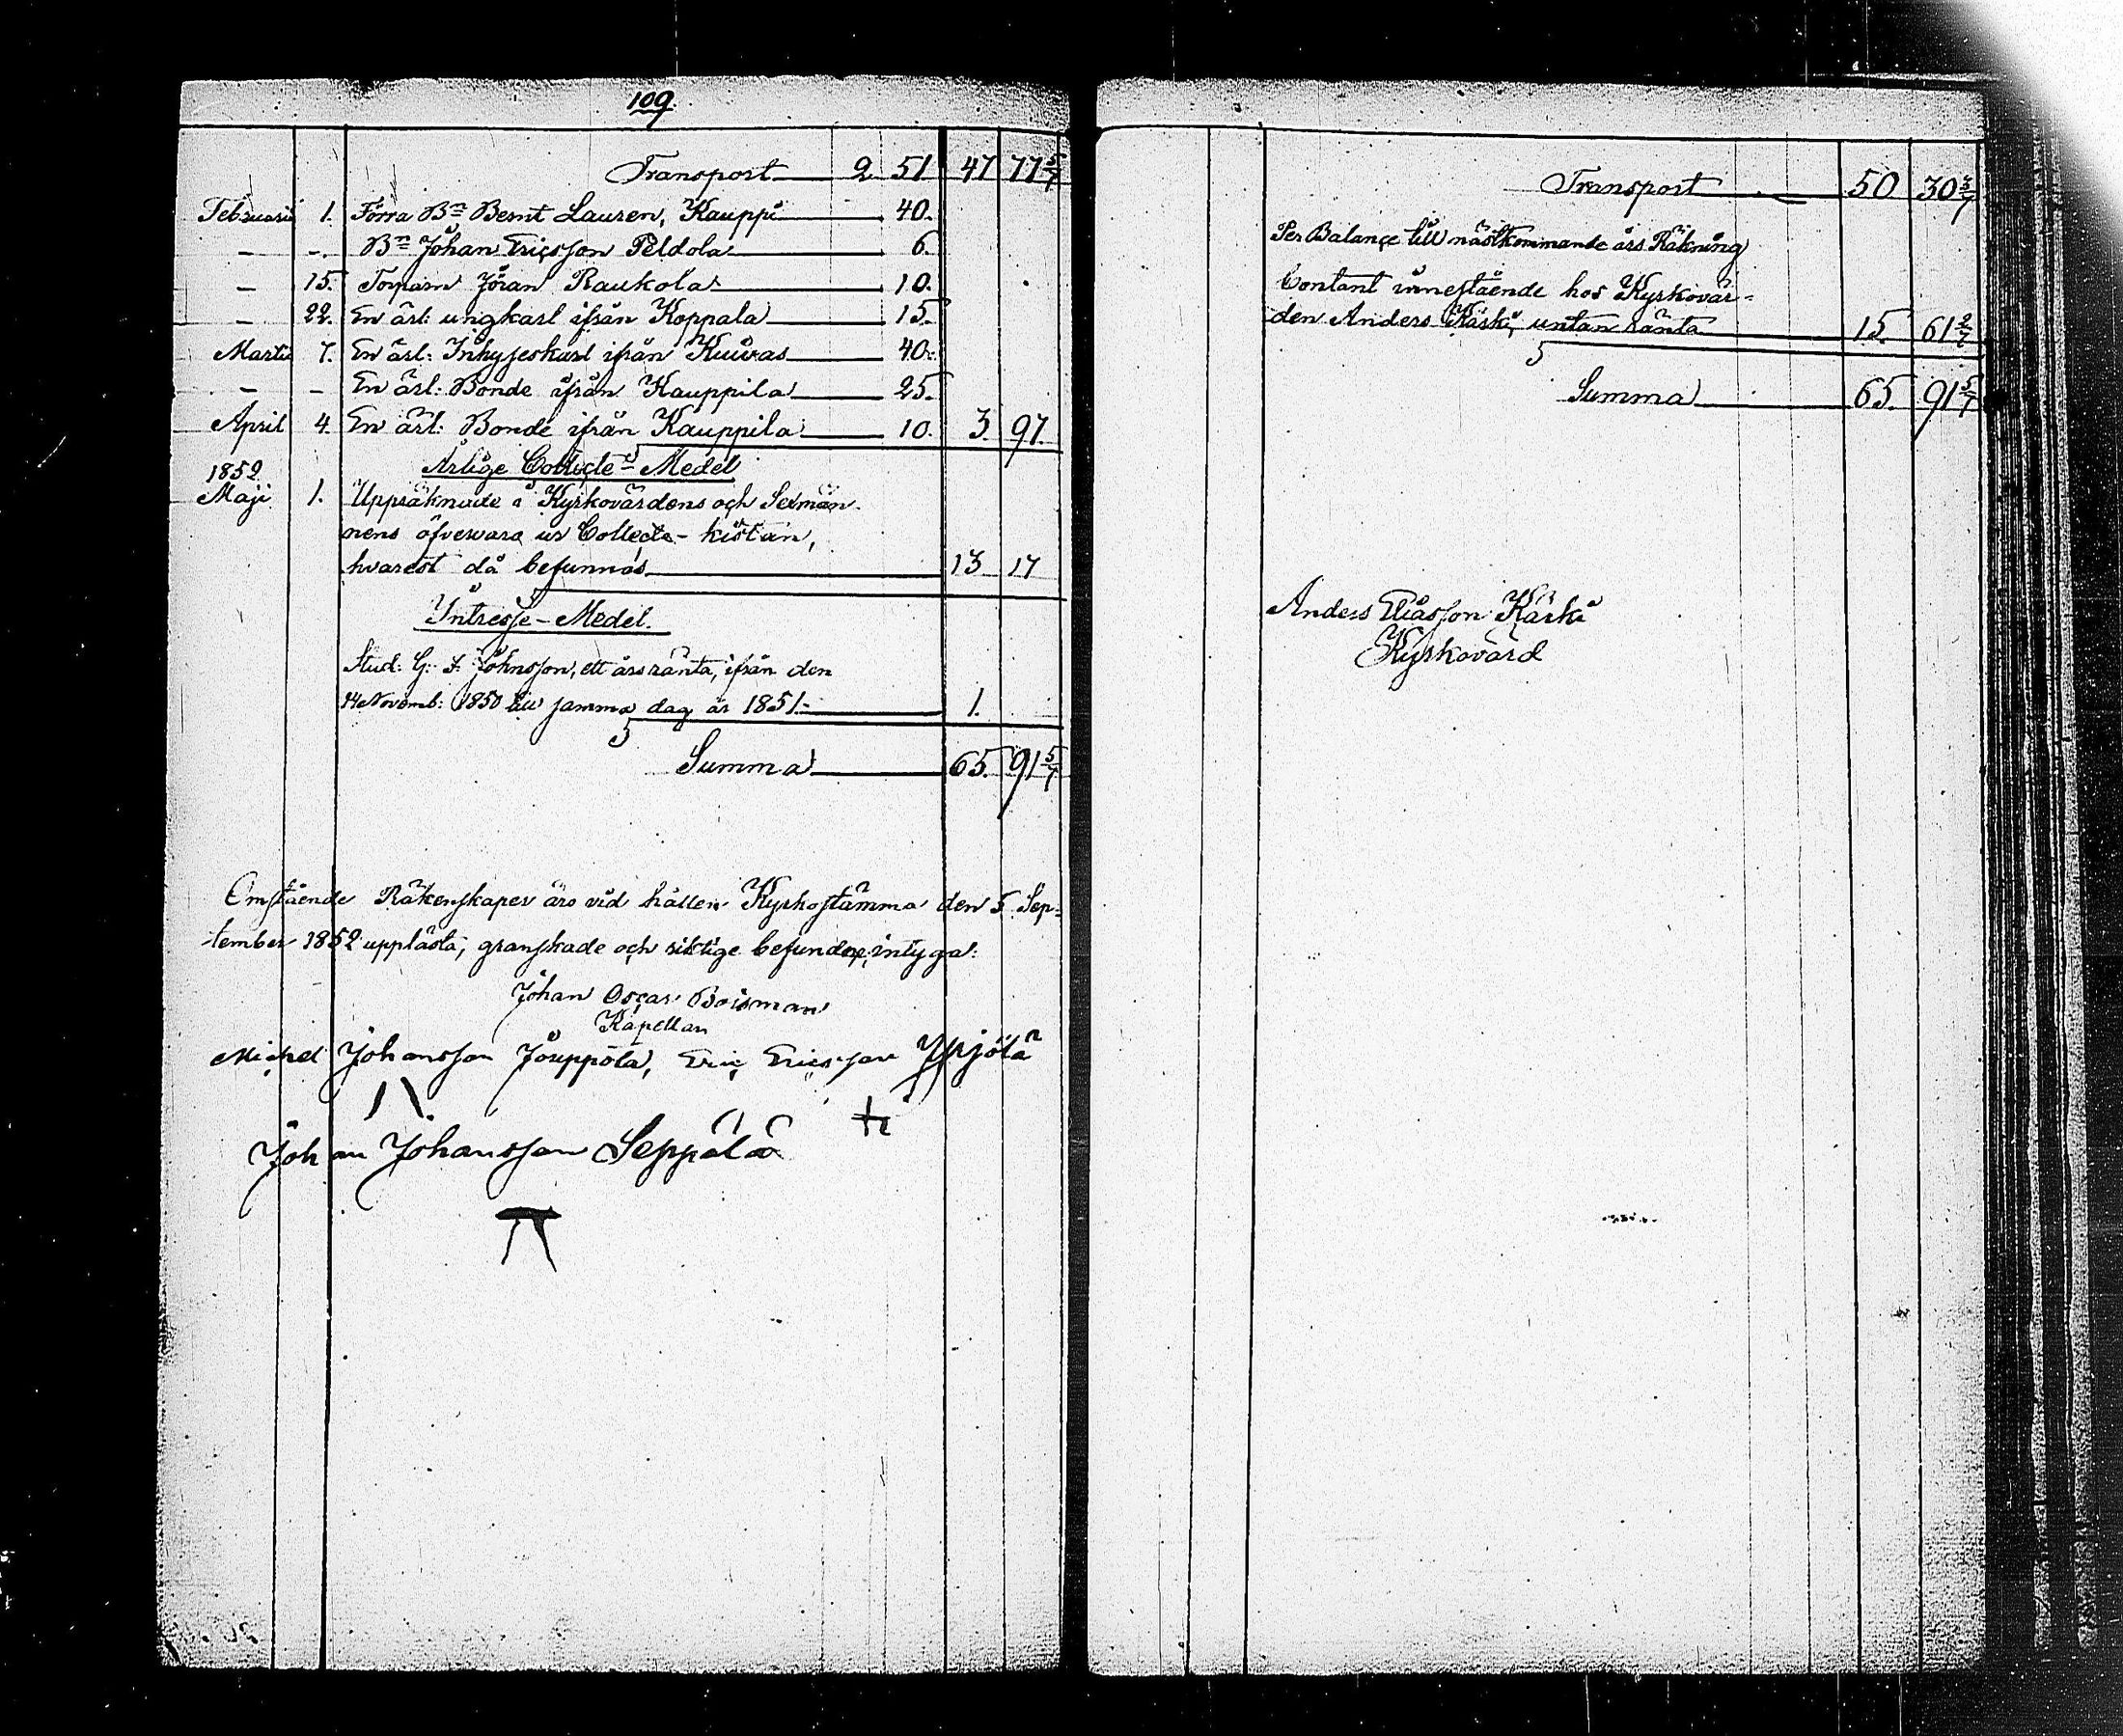 109.
Transport 2 51 47 77 5/7
Februarii 1. Förra Bn Bernt Lauren, Kauppi 40.
— —. Bn Johan Ericsson Peldola 6.
— 15. Torparn Jöran Raukola 10.
— 22. En ärl: ungkarl ifrån Koppala 15.
Martii 7. En ärl: Inhyseskarl ifrån Kuivas 40.
— — En ärl: Bonde ifrån Kauppila 25.
April 4. En ärl: Bonde ifrån Kauppila 10. 3. 97.
Årlige Collecte-Medel
1852
Maji 1. Uppräknade i Kyrkovärdens och Sexmän-
nens öfvervara ur Collecte-kistan,
hvarest då befunnos 13 17
Intresse-Medel.
Stud: G: F: Johnsson, ett års ränta, ifrån den
14 Novemb: 1850 till samma dag år 1851. 1.
Summa 65. 91 5/7
Omstående Räkenskaper äro vid hållen Kyrkostämma den 5 Sep-
tember 1852 upplästa, granskade och riktige befundne, intyga:
Johan Oscar Boisman
Kapellan
Michel Johansson Jouppola, Eric Ericsson Ypjölä
Johan Johansson Seppälä
Transport 50 30 3/7
Per Balance till nästkommande års Räkning
Contant innestående hos Kyrkovär-
den Anders Karki, untan ränta 15. 61 2/7
Summa 65. 91 5/7
Anders Eliasson Karki
Kyrkovärd